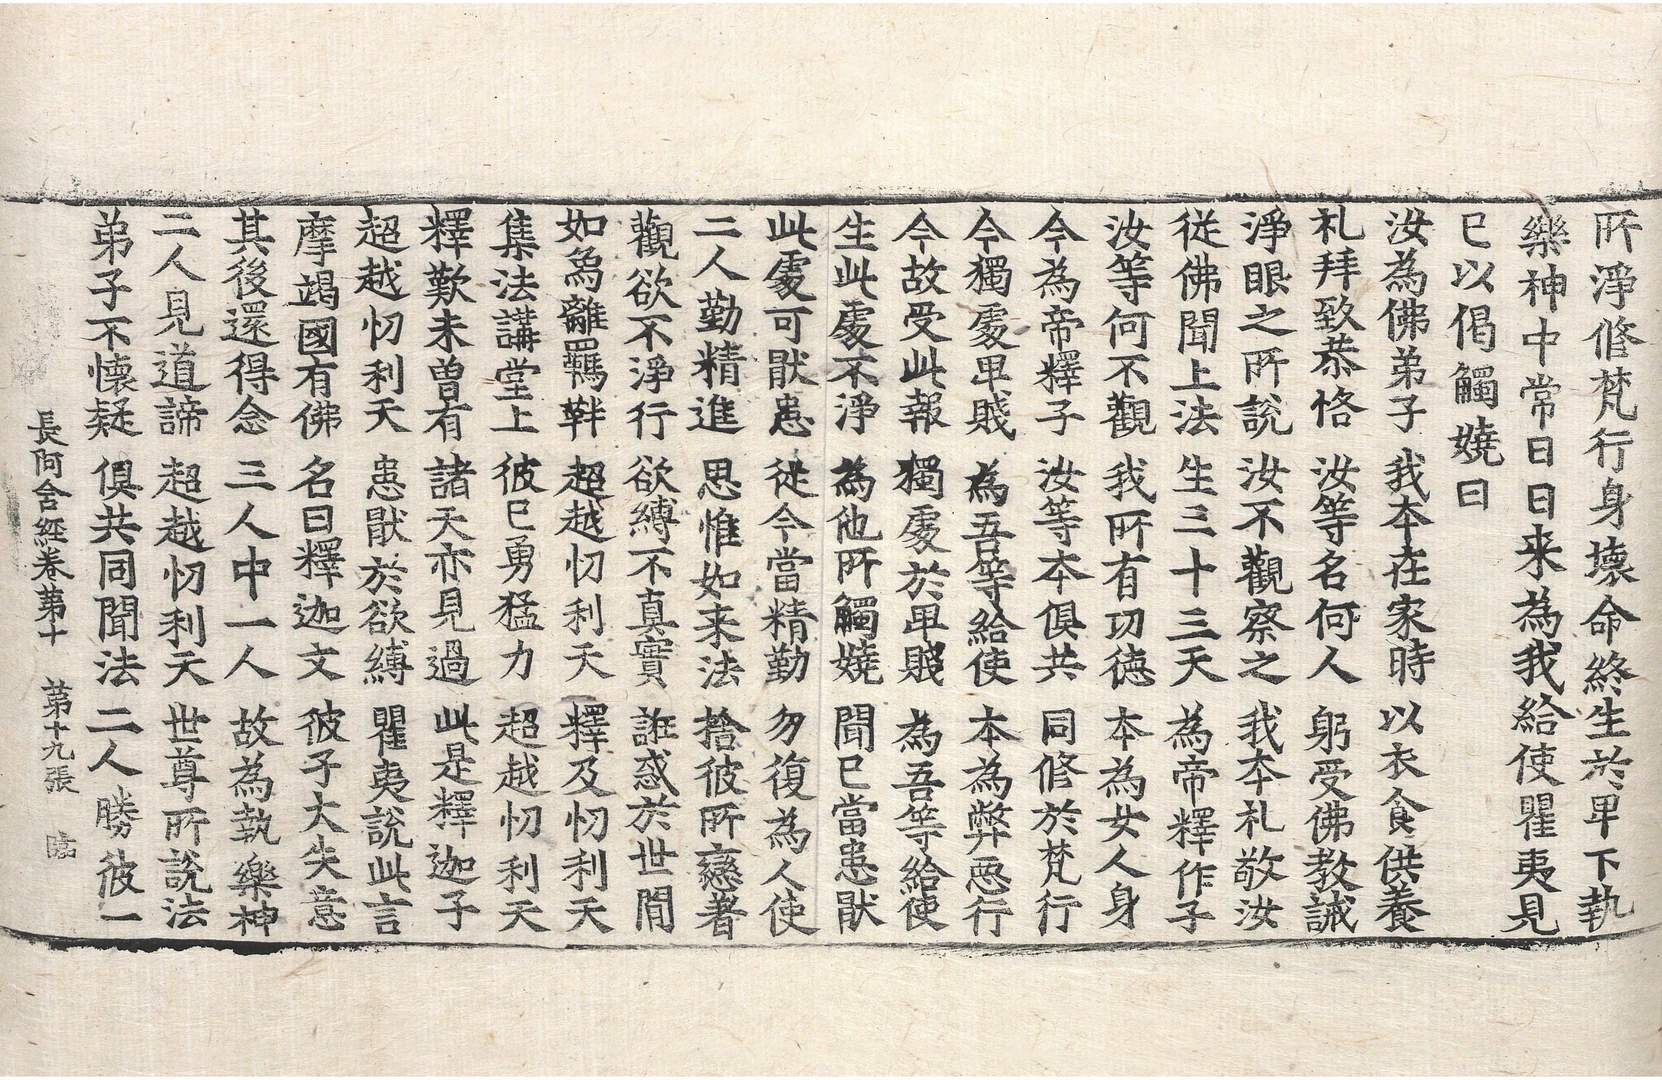 所淨修梵行身壊命終生於卑下執
樂神中常日日来為我給使瞿夷見
已以偈觸嬈曰
汝為佛弟子 我夲在家時 以衣食供養
礼拜致恭恪 汝等名何人 躬受佛教誡
淨眼之所說 汝不觀察之 我夲礼敬汝
從佛聞上法 生三十三天 為帝釋作子
汝等何不觀 我所有功德 本為女人身
今為帝釋子 汝等本俱共 同修於梵行
今獨處卑賤 為吾等給使 本為弊惡行
今故受此報 獨處於卑賤 為吾等給使
生此處不淨 為他所觸嬈 聞已當患猒
此處可猒患 從今當精勤 勿復為人使
二人勤精進 思惟如来法 捨彼所戀著
觀欲不淨行 欲縛不真實 誑惑於世間
如象離羈靽 超越忉利天 釋及忉利天
集法講堂上 彼已勇猛力 超越忉利天
釋歎未曽有 諸天亦見過 此是釋迦子
超越忉利天 患猒於欲縛 瞿夷說此言
摩竭國有佛 名曰釋迦文 彼子大失意
其後還得念 三人中一人 故為執樂神
二人見道諦 超越忉利天 世尊所說法
弟子不懐疑 俱共同聞法 二人勝彼一
長阿含經卷第十 第十九張 臨